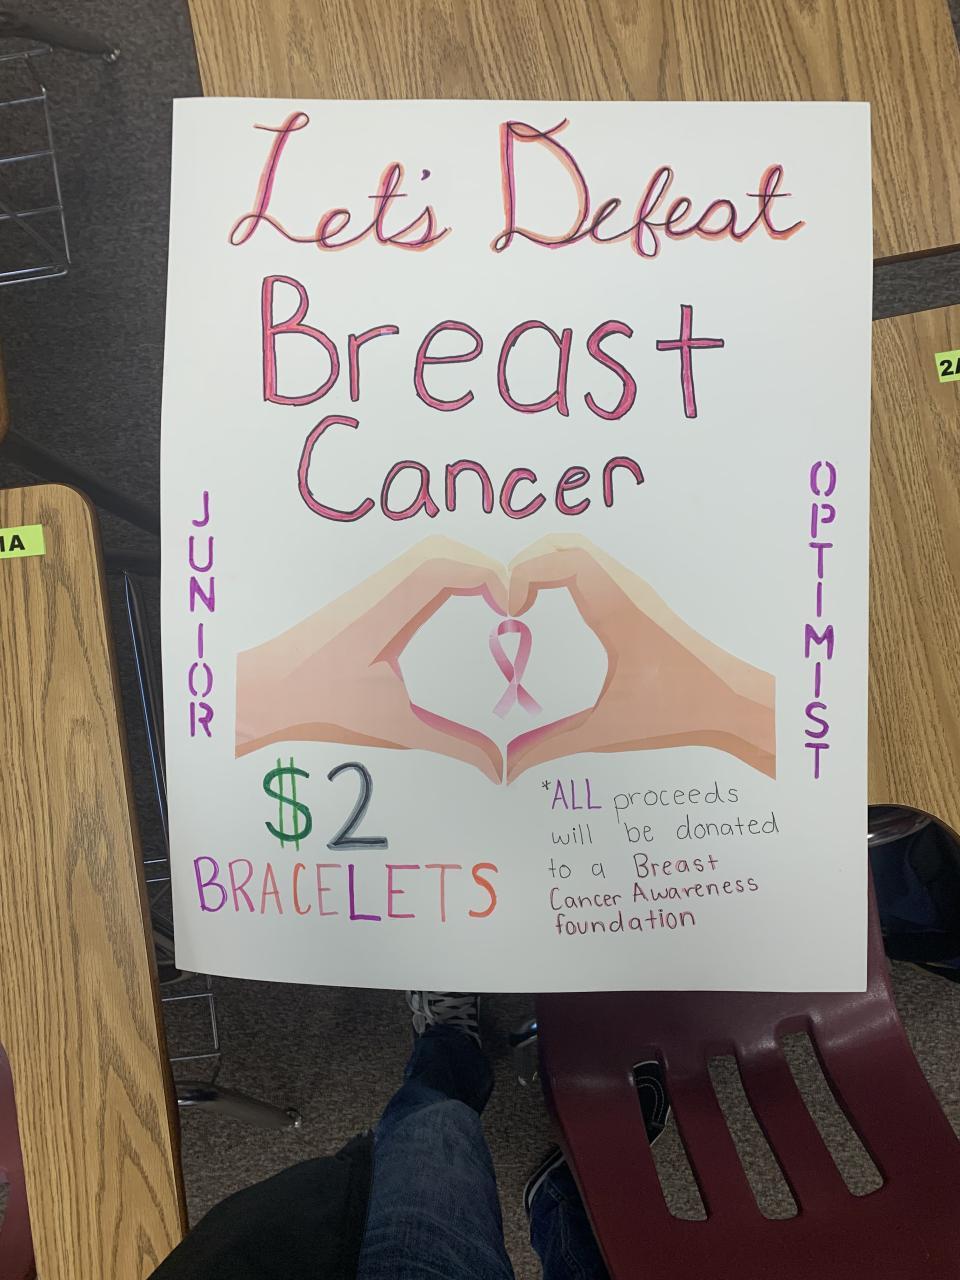 Let's Defeat
Breast
Cancer
JUNIOR
OPTIMIST
$2
BRACELETS
*ALL proceeds
will be donated
to a Breast
Cancer Awareness
foundation
1A